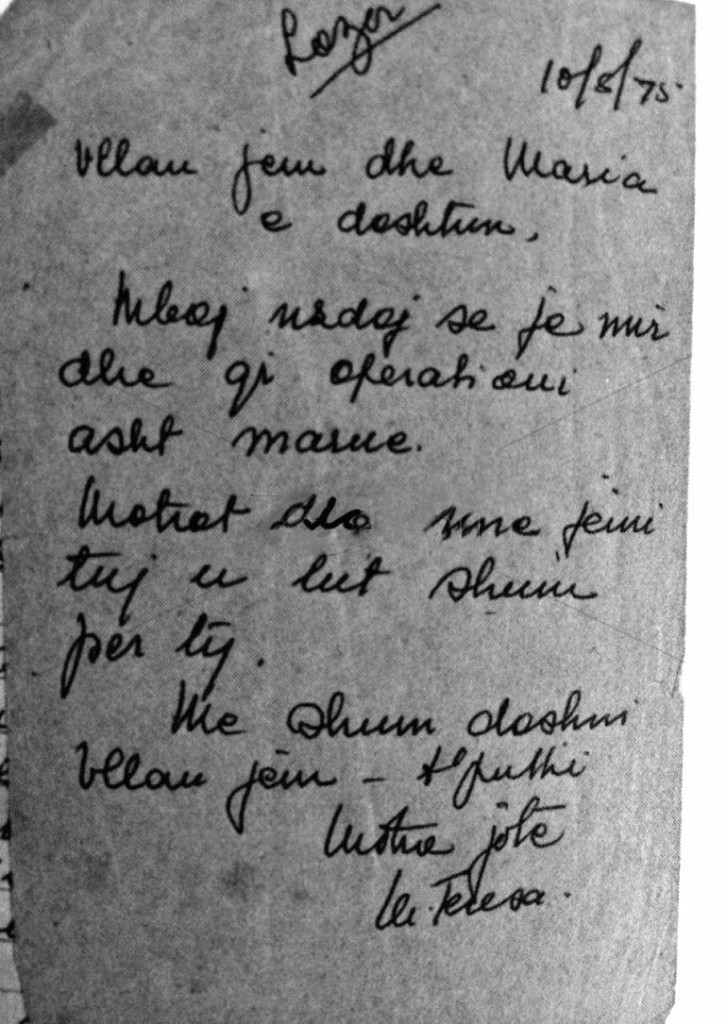 Lazer
10/8/75
Vllau jem dhe Maria
e dashtun,
Mbaj ndoj se je mir
dhe qi operationi
asht marue.
Motrat dhe une jemi
tuj u lut shum
per tij.
Me shum dashni
Vllau jem – t'puthi
Motra jote
M. Teresa.